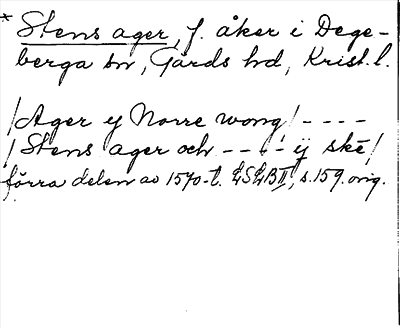 * Stens ager, f. åker i Dege-
berga sn, Gärds hd, Krist. l.
/Ager ij Norre wong/ - - - -
/Stens ager och - - - - ij skē/
förra delen av 1570-t. LSLB II, s. 159. orig.